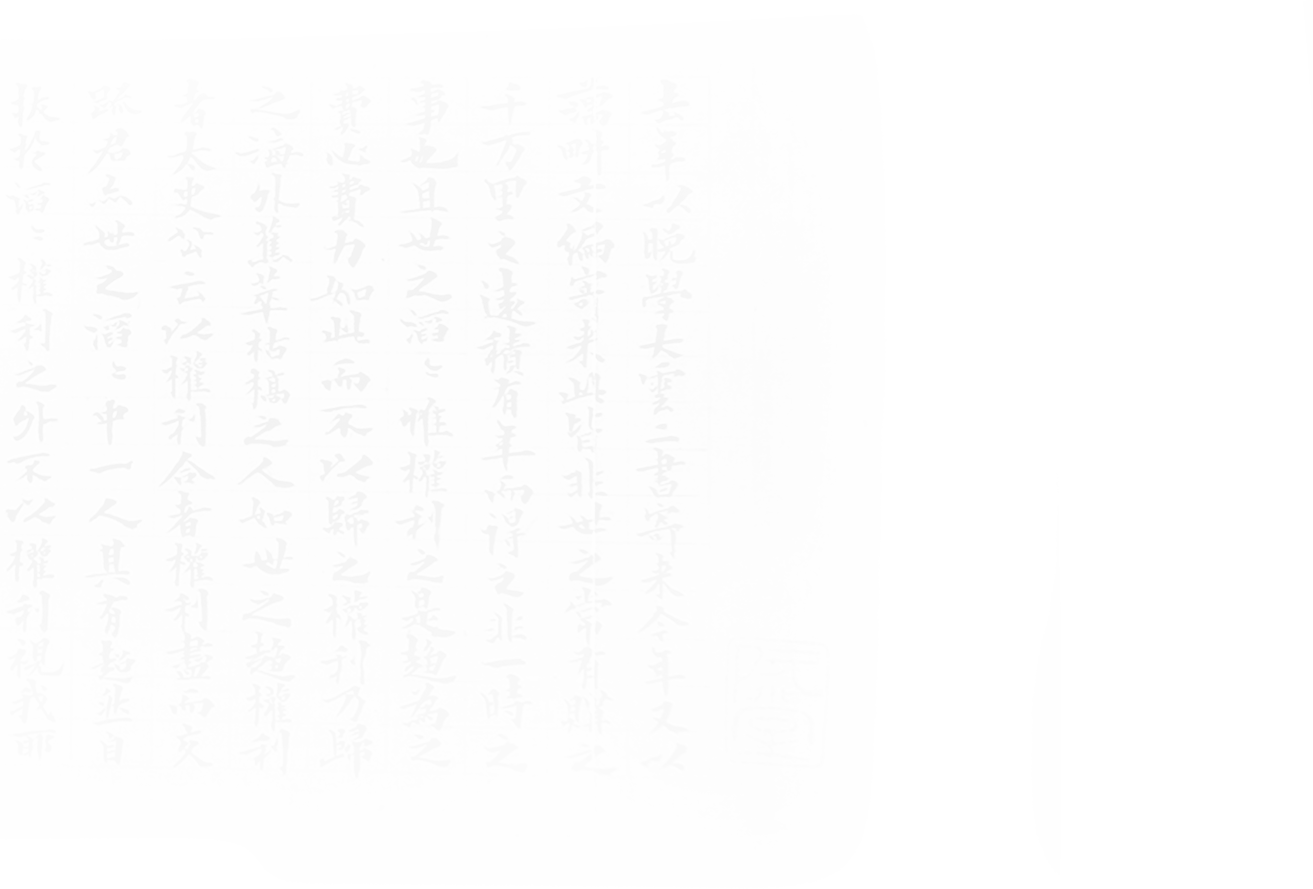 去年以晚學大雲二書寄来今年又以
藕畊文編寄来此皆非世之常有購之
千万里之遠積有年而得之非一時之
事也且世之滔〻惟權利之是趍為之
費心費力如此而不以歸之權利乃歸
之海外蕉萃枯稿之人如世之趍權利
者太史公云以權利合者權利盡而交
踈君亦世之滔〻中一人其有超然自
拔扵滔〻權利之外不以權利視我耶